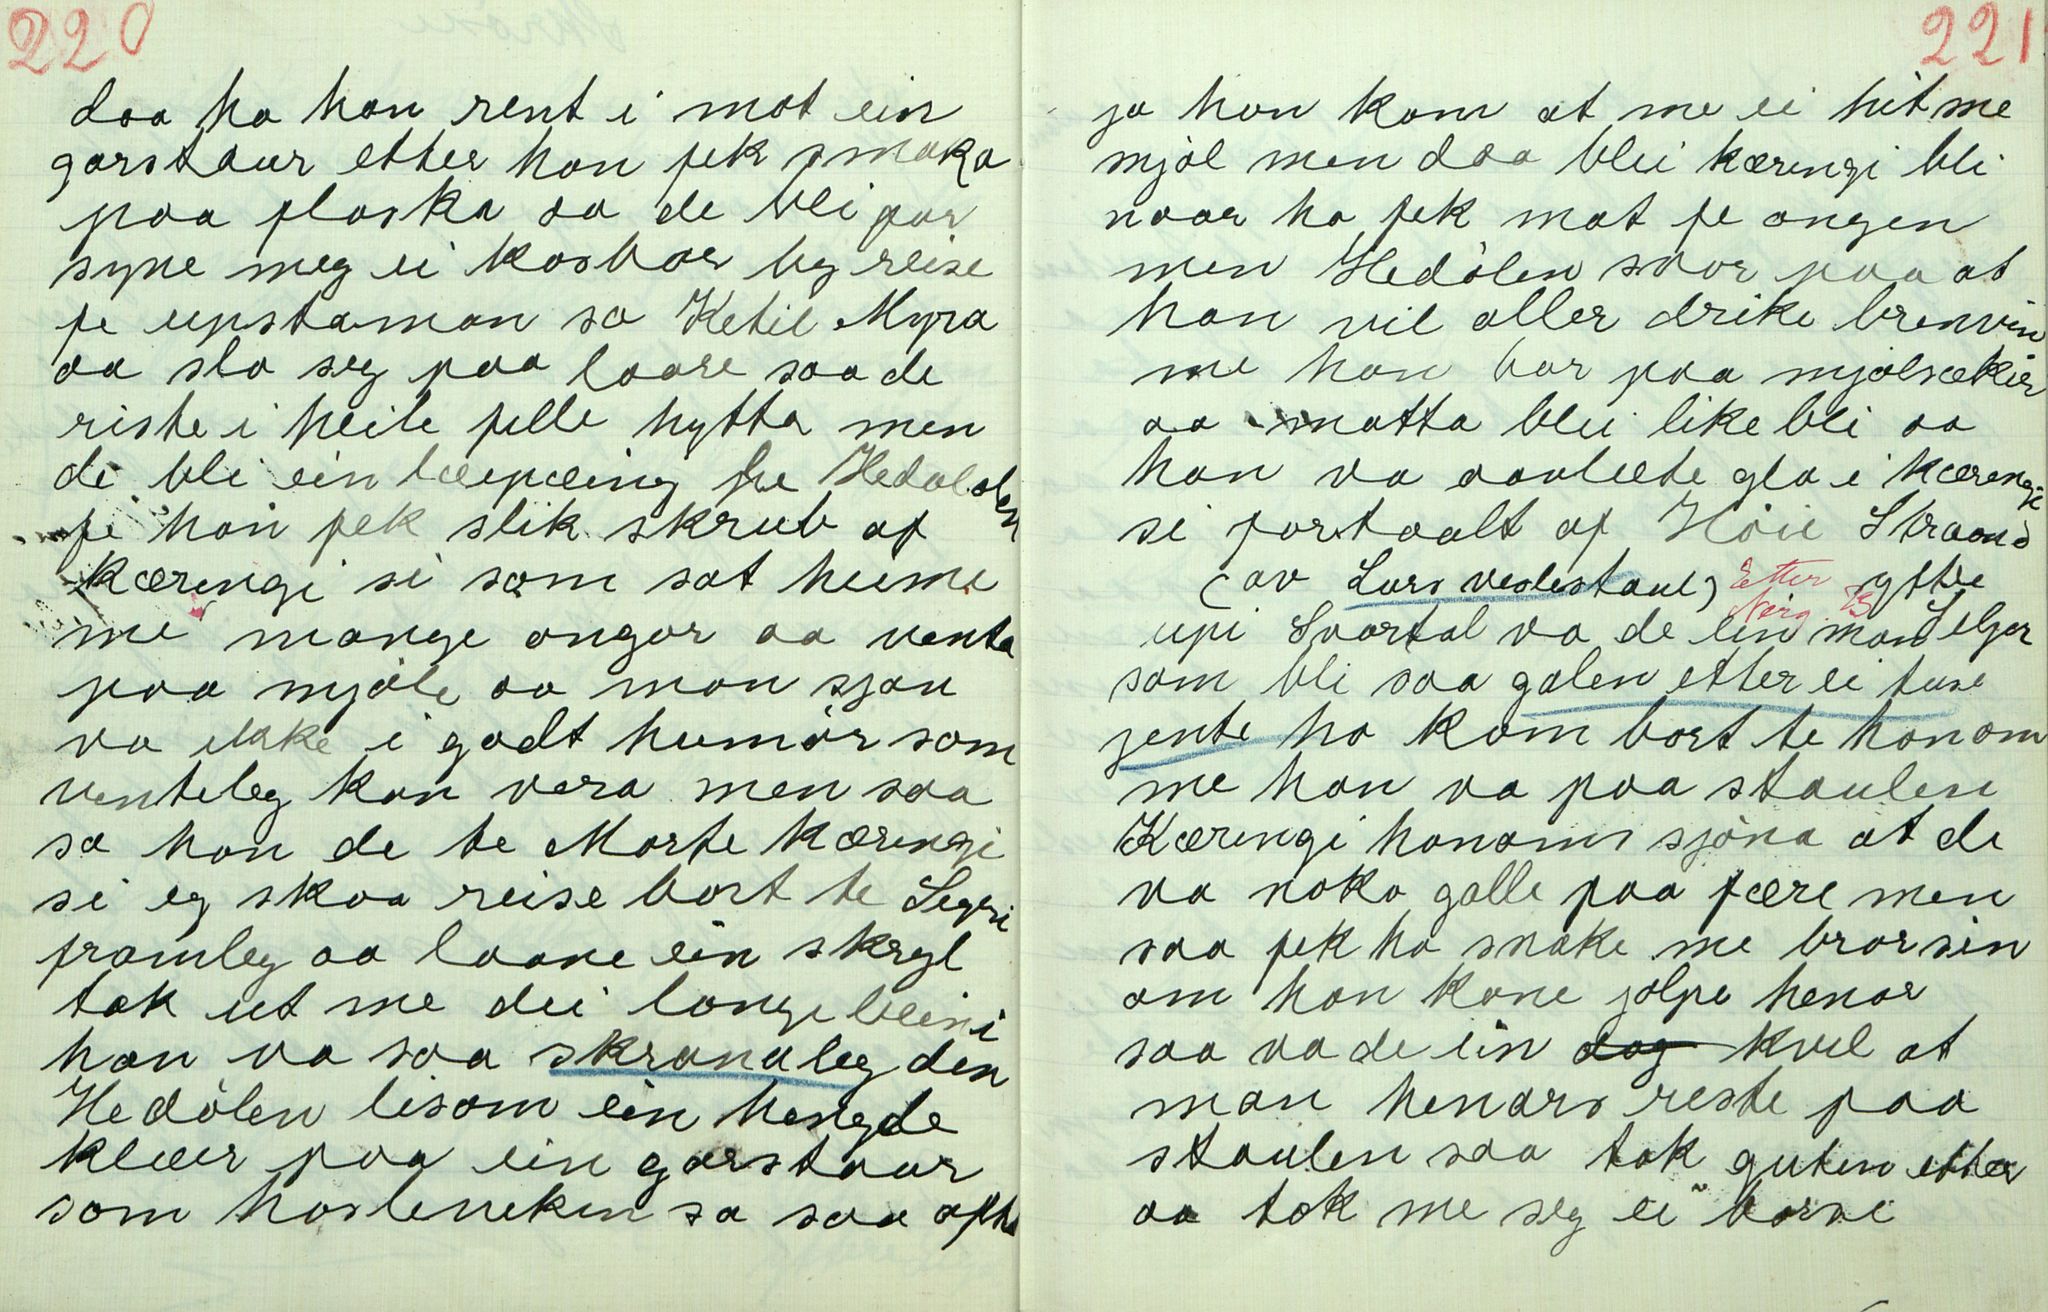 220
daa ha han rent i mot ein
garstaur etter han fek smaka
paa flaska aa de blei par
syne meg ei kosbær og reise
fe upstaman sa Ketil Myra
aa slo seg paa laare saa de
riste i heile felle hytta men
di blei ein læepæing fe Hedalolen
fe han fek slik skrub af
kæringi si som sat heime
me mange ongar aa venta
paa mjøle aa man sjøn
va ikkke i godt humør som
venteleg kan vera men saa
sa han de te Marte kæringi
si eg skaa reise bort te
framleg aa laane ein skryl
tak ut me dei lange beini
han va saa skranaleg den
Hedölen lisom ein hengde
klæer paa ein garstaur
som hosleneken sa saa ofte
221
ja han kom at me ei hit me
mjøl men daa blei kæringi bli
naar ho fek mat fe ongen
men Hedölen svor paa at
han vil aller drike brenvin
me han bar paa mjølsækier
aa matta blei like bli aa
han va aavlæte gla i kæringi
si fortaalt af Höie Straand
(av Lars veslestaul) Etter
upi Svartal va de ein man
som blei saa galen etter ei fuse
jente ho kom bort te honom
me han va paa staulen
Kæringi honoms sjøna at de
va noko galle paa fære men
saa fek ho snake me bror sin
om han kune jølpe henar
saa va de ein dag kvel at
man henars reste paa
staulen saa tok guten etter
aa tok me seg ei børse